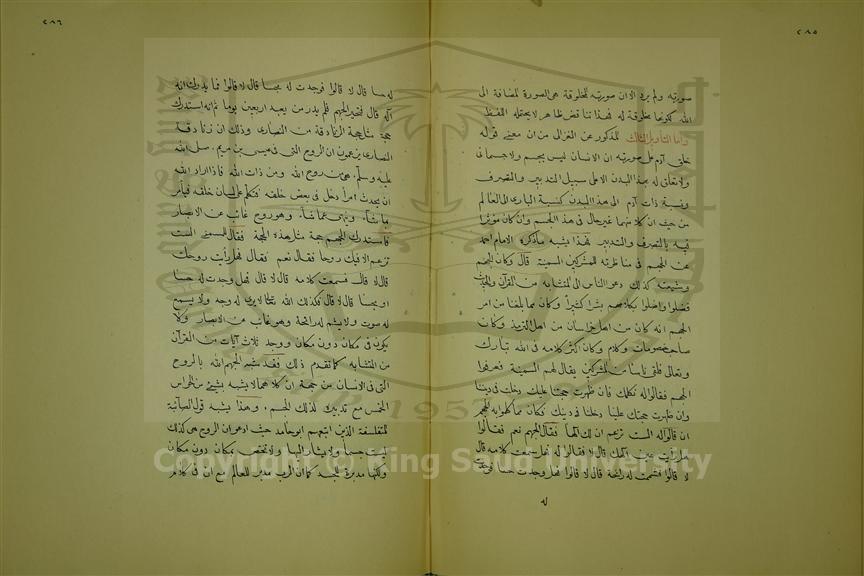 ٢٨٥
صورته ولم يرد الا ان صورته المخلوقة هي الصورة المضافة الى
الله لكونها مخلوقة له فهذا تناقض ظاهر لا يحتمله اللفظ
واما التأويل الثالث المذكور عن الغزالي من ان معنى قوله
خلق آدم على صورته ان الانسان ليس بجسم ولا جسماني
ولا تعلق له بهذا البدن الا على سبيل التدبير والتصرف
ونسبة ذات آدم الى هذا البدن كنسبة الباري الى العالم
من حيث ان كلا منهما غير حال في هذا الجسم وان كان مؤثرا
فيه بالتصرف والتدبير فهذا يشبه ما ذكره الامام احمد
عن الجهم في مناظرته للمشركين السمنية قال وكان الجهم
وشيعته كذلك دعوا الناس الى المتشابه من القرآن والحديث
فضلوا واضلوا بكلامهم بشرا كثيرا وكان مما بلغنا من امر
الجهم انه كان من اهل خراسان من اهل الترمذ وكان
صاحب خصومات وكلام وكان اكثر كلامه في الله تبارك
وتعالى فلقي ناسا من المشركين يقال لهم السمنية فعرفوا
الجهم فقالوا له نكلمك فان ظهرت حجتنا عليك دخلت في ديننا
وان ظهرت حجتك علينا دخلنا في دينك فكان مما كلموا به الجهم
ان قالوا له الست تزعم ان لك آلها فقال الجهم نعم فقالوا
هل رأيت عين آلهك قال لا فقالوا له فهل سمعت كلامه قال
لا قالوا فشممت له رائحة قال لا قالوا فهل وجدت حسا فوجدت
له
٢٨٦
له حسا قال لا قالوا فوجدت له مجسا قال لا قالوا فما يدريك انه
آله قال فتحير الجهم فلم يدر من يعبد اربعين يوما ثم انه استدرك
حجة مثل حجة الزنادقة من النصارى وذلك ان زنادقة
النصارى يزعمون ان الروح التي في عيسى بن مريم صلى الله
عليه وسلم هي من روح الله ومن ذات الله فاذا اراد الله
ان يحدث امرا دخل في بعض خلقه فتكلم على لسان خلقه فيأمر
بما شاء وينهى عما شاء وهو روح غائب عن الابصار
فاستدرك الجهم حجة مثل هذه الحجة فقال للسمني الست
تزعم ان فيك روحا فقال نعم فقال هل رأيت روحك
قال لا قال فسمعت كلامه قال لا قال فهل وجدت له حسا
او مجسا قال لا قال فكذلك الله تعالى لا يرى له وجه ولا يسمع
له صوت ولا يشم له رائحة وهو غائب عن الابصار ولا
يكون في مكان دون مكان ووجد ثلاث آيات من القرآن
من المتشابه كما تقدم ذلك فقد شبه الجهم الله بالروح
التي في الانسان من جهة ان كلاهما لا يشبه بشيء من الحواس
الخمس مع تدبير ذلك للجسم وهذا يشبه قول الصابئة
المتفلسفة الذين اتبعهم ابو حامد حيث ادعوا ان الروح هي كذلك
ليست جسما ولا يشار اليها ولا تختص بمكان دون مكان
ولكنها مدبرة للجسد كما ان الرب مدبر للعالم مع ان في كلام
Copyright © King Saud University
1957